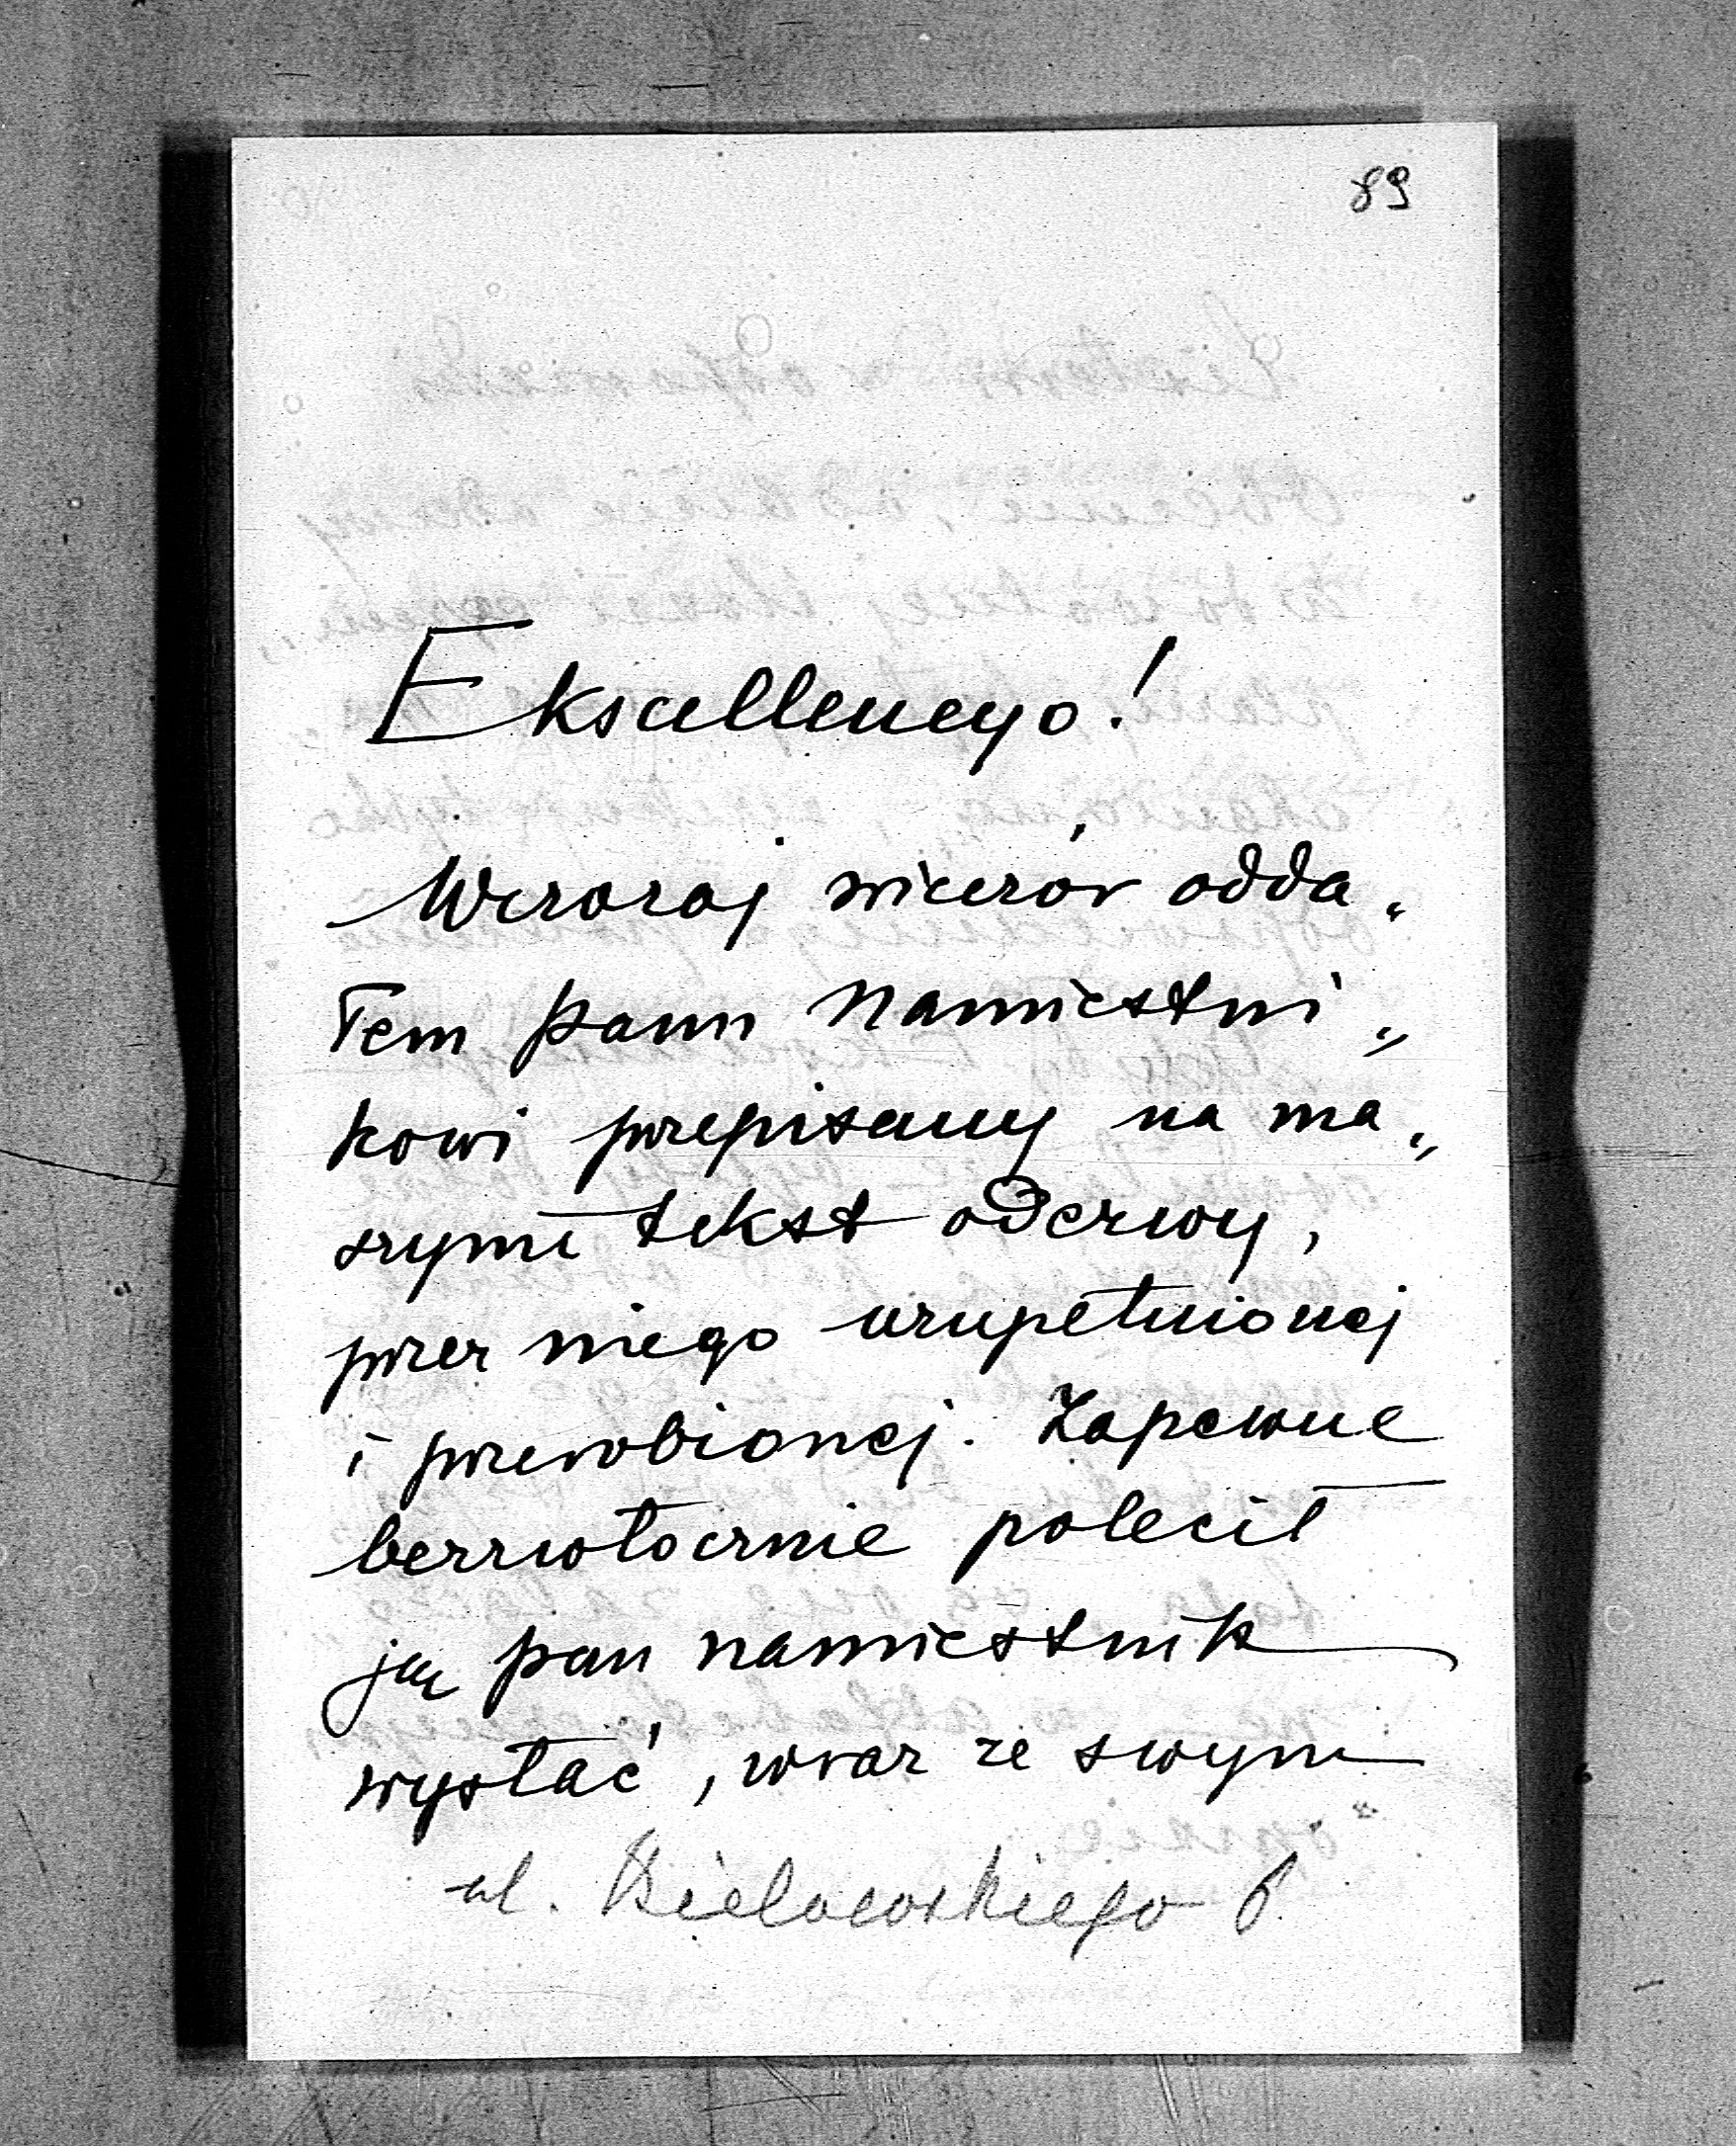 89
Ekscellencyo!
Wczoraj wieczór odda„
łem panu Namiestni„
kowi przepisany na ma„
szynie tekst odezwy,
przez niego uzupełnionej
i przerobionej. Zapewne
bezzwłocznie polecił
ją pan namiestnik
wysłać, wraz ze swym
ul. Bielowskiego 6.